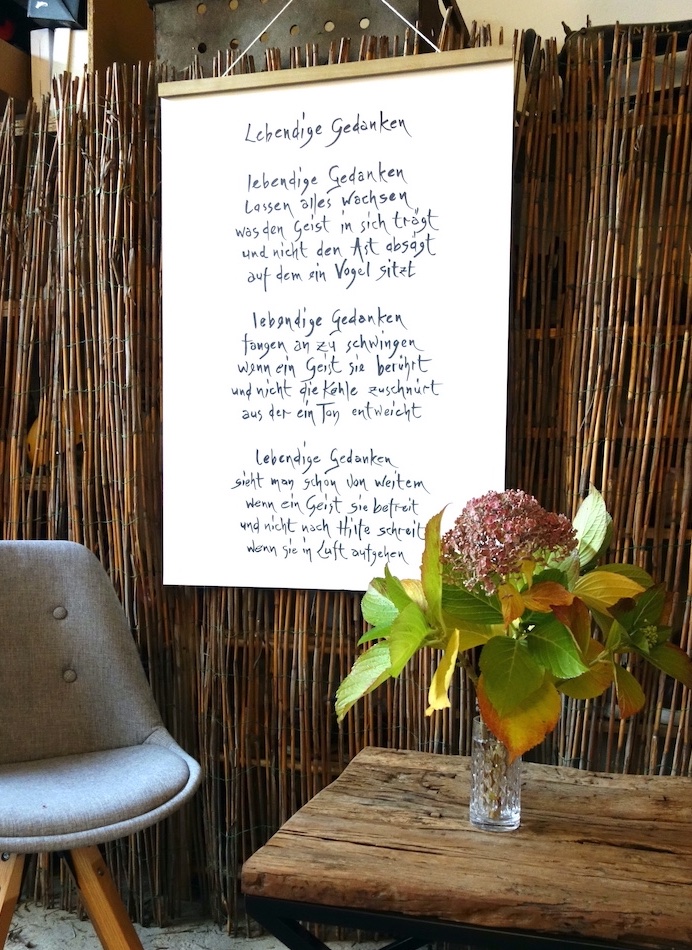 Lebendige Gedanken
lebendige Gedanken
lassen alles wachsen
was den Geist in sich trägt
und nicht den Ast absägt
auf dem ein Vogel sitzt
lebendige Gedanken
fangen an zu schwingen
wenn ein Geist sie berührt
und nicht die Kehle zuschnürt
aus der ein Ton entweicht
lebendige Gedanken
sieht man schon von weitem
wenn ein Geist sie befreit
und nicht nach Hilfe schreit
wenn sie in Luft aufgehen